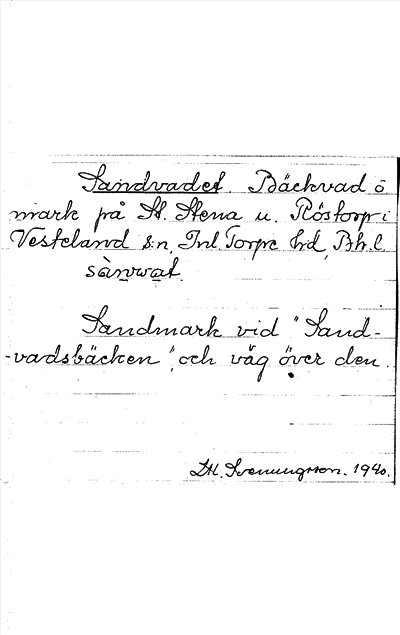 Sandvadet. Bäckvad ö
mark på St. Stena u. Röstorp i
Vesteland s:n, Inl. Torpe hd, Bh.l.
sànwat.
Sandmark vid "Sand-
-vadsbäcken", och väg över den.
Svenungsson. 1940.